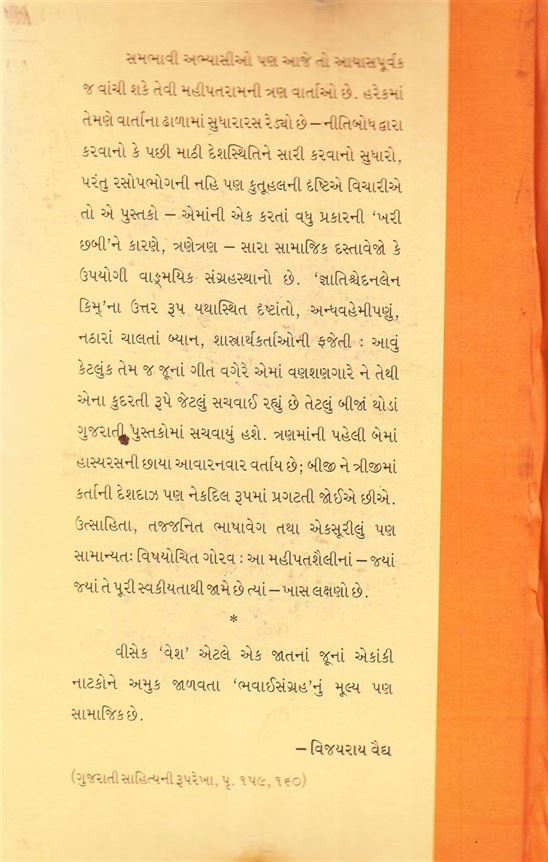 સમભાવી અભ્યાસીઓ પણ આજે તો આયાસપૂર્વક
જ વાંચી શકે તેવી મહીપતરામની ત્રણ વાર્તાઓ છે. હરેકમાં
તેમણે વાર્તાના ઢાળામાં સુધારારસ રેડ્યો છે – નીતિબોધ દ્વારા
કરવાનો કે પછી માઠી દેશસ્થિતિને સારી કરવાનો સુધારો,
પરંતુ રસોપભોગની નહિ પણ કુતૂહલની દૃષ્ટિએ વિચારીએ
તો એ પુસ્તકો – એમાંની એક કરતાં વધુ પ્રકારની ‘ખરી
છબી’ને કારણે, ત્રણેત્રણ – સારા સામાજિક દસ્તાવેજો કે
ઉપયોગી વાઙ્મયિક સંગ્રહસ્થાનો છે. ‘જ્ઞાતિશ્ચેદનલેન
કિમ્’ના ઉત્તર રૂપ યથાસ્થિત દૃષ્ટાંતો, અન્ધવહેમીપણું,
નઠારાં ચાલતાં બ્યાન, શાસ્ત્રાર્થકર્તાઓની ફજેતી : આવું
કેટલુંક તેમ જ જૂનાં ગીત વગેરે એમાં વણશણગારે ને તેથી
એના કુદરતી રૂપે જેટલું સચવાઈ રહ્યું છે તેટલું બીજાં થોડાં
ગુજરાતી પુસ્તકોમાં સચવાયું હશે. ત્રણમાંની પહેલી બેમાં
હાસ્યરસની છાયા આવારનવાર વર્તાય છે; બીજી ને ત્રીજીમાં
કર્તાની દેશદાઝ પણ નેકદિલ રૂપમાં પ્રગટતી જોઈએ છીએ.
ઉત્સાહિતા, તજ્જનિત ભાષાવેગ તથા એકસૂરીલું પણ
સામાન્યતઃ વિષયોચિત ગૌરવ : આ મહીપતશૈલીનાં – જ્યાં
જ્યાં તે પૂરી સ્વકીયતાથી જામે છે ત્યાં – ખાસ લક્ષણો છે.
*
વીસેક ‘વેશ’ એટલે એક જાતનાં જૂનાં એકાંકી
નાટકોને અમુક જાળવતા ‘ભવાઈસંગ્રહ’નું મૂલ્ય પણ
સામાજિક છે.
– વિજયરાય વૈદ્ય
(ગુજરાતી સાહિત્યની રૂપરેખા, પૃ. ૧૫૯, ૧૬૦)